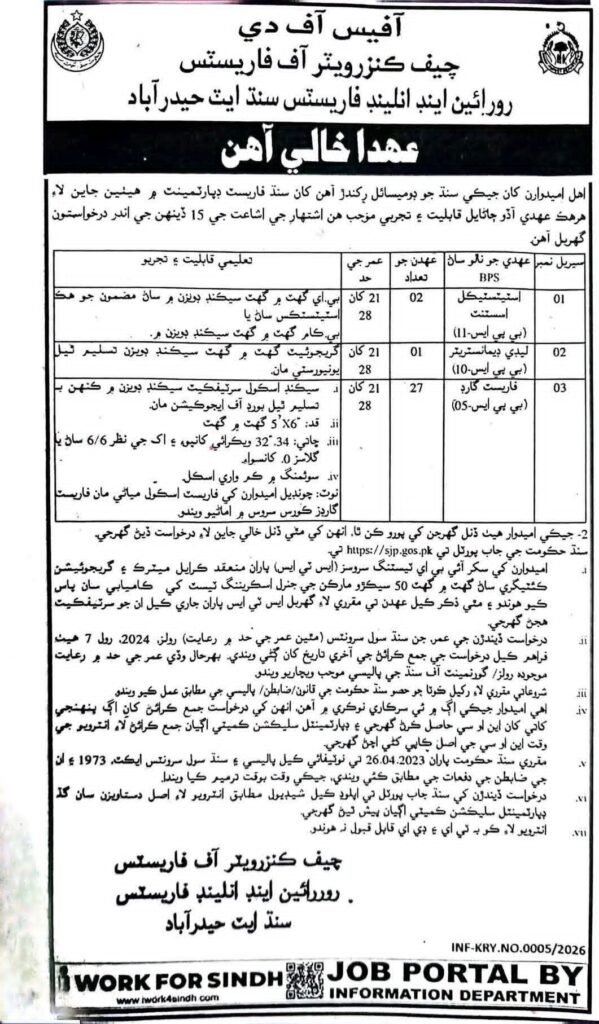 آفيس آف دي
چيف ڪنزرويٽر آف فاريسٽس
رورائين اينڊ انلينڊ فاريسٽس سنڌ ايٽ حيدرآباد
عهدا خالي آهن
اهل اميدوارن کان جيڪي سنڌ جو ڊوميسائل رکندڙ آهن کان سنڌ فاريسٽ ڊپارٽمينٽ ۾ هيٺين جاين لاءِ
هرهڪ عهدي آڏو ڄاڻايل قابليت ۽ تجربي موجب هن اشتهار جي اشاعت جي 15 ڏينهن جي اندر درخواستون
گهربل آهن.
سيريل نمبر
عهدي جو نالو ساڻ BPS
عهدن جو تعداد
عمر جي حد
تعليمي قابليت ۽ تجربو
01
اسٽيٽسٽيڪل اسسٽنٽ (بي پي ايس-11)
02
21 کان 28
بي.اي گهٽ ۾ گهٽ سيڪنڊ ڊويزن ۾ ساڻ مضمون جو هڪ
اسٽيٽسٽڪس ساڻ يا
بي.ڪام گهٽ ۾ گهٽ سيڪنڊ ڊويزن ۾.
02
ليڊي ڊيمانسٽريٽر (بي پي ايس-10)
01
21 کان 28
گريجوئيٽ گهٽ ۾ گهٽ سيڪنڊ ڊويزن تسليم ٿيل
يونيورسٽي مان.
03
فاريسٽ گارڊ (بي پي ايس-05)
27
21 کان 28
i. سيڪنڊ اسڪول سرٽيفڪيٽ سيڪنڊ ڊويزن ۾ ڪنهن به
تسليم ٿيل بورڊ آف ايجوڪيشن مان.
ii. قد: 5'X6" گهٽ ۾ گهٽ
iii. ڇاتي: 34."32 ويڪرائي کانپوءِ ۽ اک جي نظر 6/6 ساڻ يا
گلاسز 0. کانسواءِ.
iv. سوئمنگ ۾ ڪم واري اسڪل.
نوٽ: چونڊيل اميدوارن کي فاريسٽ اسڪول مياڻي مان فاريسٽ
گارڊز ڪورس سروس ۾ اماڻيو ويندو.
2- جيڪي اميدوار هيٺ ڏنل گهرجن کي پورو ڪن ٿا، انهن کي مٿي ڏنل خالي جاين لاءِ درخواست ڏيڻ گهرجي.
سنڌ حڪومت جي جاب پورٽل تي https://sjp.gos.pk تي.
i. اميدوارن کي سکر آئي بي اي ٽيسٽنگ سروسز (ايس ٽي ايس) پاران منعقد ڪرايل ميٽرڪ ۽ گريجوئيشن
ڪئٽيگري ساڻ گهٽ ۾ گهٽ 50 سيڪڙو مارڪن جي جنرل اسڪريننگ ٽيسٽ کي ڪاميابي سان پاس
ڪيو هوندو ۽ مٿي ذڪر ڪيل عهدن تي مقرري لاءِ گهربل ايس ٽي ايس پاران جاري ڪيل ان جو سرٽيفڪيٽ
هجڻ گهرجي.
ii. درخواست ڏيندڙن جي عمر، جن سنڌ سول سرونٽس (مٿين عمر جي حد ۾ رعايت) رولز، 2024، رول 7 هيٺ
فراهم ڪيل درخواست جي جمع ڪرائڻ جي آخري تاريخ کان ڳڻي ويندي. بهرحال وڏي عمر جي حد ۾ رعايت
موجوده رولز/ گورنمينٽ آف سنڌ جي پاليسي موجب ويچاريو ويندو
iii. شروعاتي مقرري لاءِ رکيل ڪوٽا جو حصر سنڌ حڪومت جي قانون/ضابطن/ پاليسي جي مطابق عمل ڪيو ويندو
iv. اهي اميدوار جيڪي اڳ ۾ ئي سرڪاري نوڪري ۾ آهن، انهن کي درخواست جمع ڪرائڻ کان اڳ پنهنجي
کاتي کان اين او سي حاصل ڪرڻ گهرجي ۽ ڊپارٽمينٽل سليڪشن ڪميٽي اڳيان جمع ڪرائڻ لاءِ انٽرويو جي
وقت اين او سي جي اصل ڪاپي کڻي اچڻ گهرجي.
v. مقرري سنڌ حڪومت پاران 26.04.2023 تي نوٽيفائي ڪيل پاليسي ۽ سنڌ سول سرونٽس ايڪٽ، 1973 ۽ ان
جي ضابطن جي دفعات جي مطابق ڪئي ويندي، جيڪي وقت بوقت ترميم ڪيا ويندا.
vi. درخواست ڏيندڙن کي سنڌ جاب پورٽل تي اپلوڊ ڪيل شيڊيول مطابق انٽرويو لاءِ اصل دستاويزن سان گڏ
ڊپارٽمينٽل سليڪشن ڪميٽي اڳيان پيش ٿيڻ گهرجي.
vii. انٽرويو لاءِ ڪو به ٽي اي ۽ ڊي اي قابل قبول نه هوندو.
چيف ڪنزرويٽر آف فاريسٽس
رورائين اينڊ انلينڊ فاريسٽس
سنڌ ايٽ حيدرآباد
INF-KRY.NO.0005/2026
i WORK FOR SINDH
www.iwork4sindh.com
JOB PORTAL BY
INFORMATION DEPARTMENT